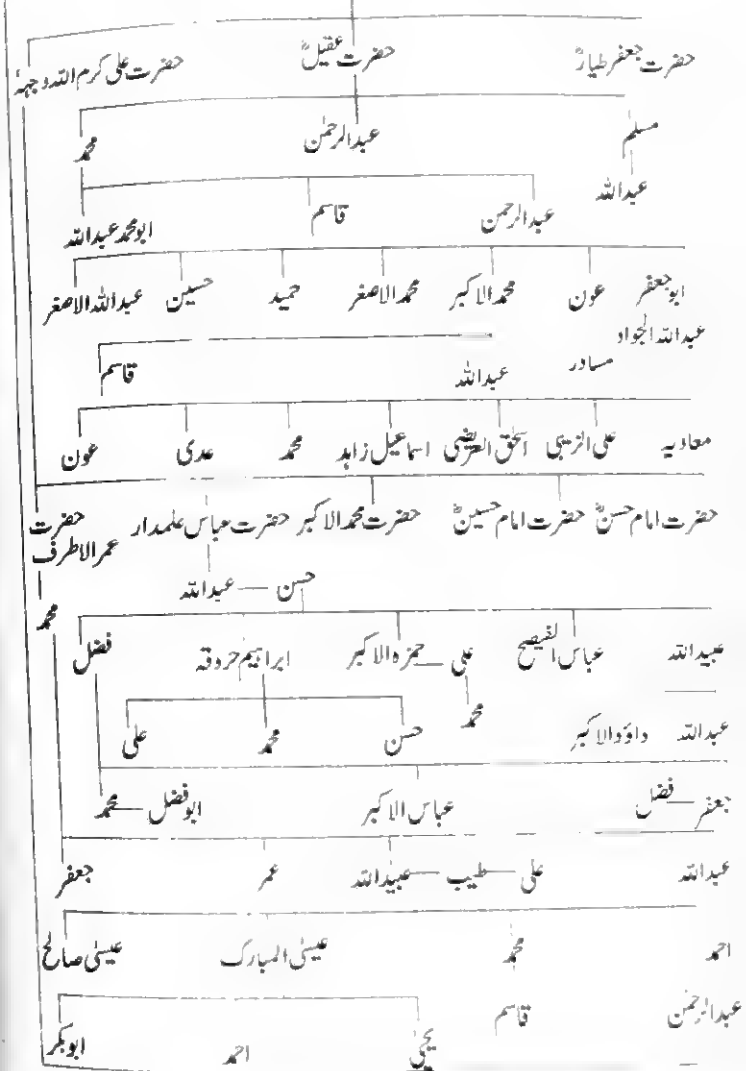 حضرت جعفر طیارؓ حضرت عقیلؓ حضرت علی کرم اللہ وجہہٗ
مسلم عبدالرحمٰن محمد
عبداللہ
عبدالرحمن قاسم ابو محمد عبداللہ
ابو جعفر عون محمد الاکبر محمد الاصغر حمید حسین عبداللہ الاصغر
عبداللہ الجواد
مساور عبداللہ قاسم
معاویہ علی الزینبی اسحٰق العریضی اسماعیل زاہد محمد عدی عون
حضرت امام حسنؓ حضرت امام حسینؓ حضرت محمد الاکبر حضرت عباس علمدار حضرت عمر الاطرف
حسن — عبداللہ
محمد
عبیداللہ عباس الفیصح علی — حمزہ الاکبر ابراہیم حروقہ فضل
محمد
عبداللہ داؤد الاکبر حسن محمد علی
جعفر — فضل عباس الاکبر ابو فضل — محمد
عبداللہ علی — طیب — عبیداللہ عمر جعفر
احمد محمد عیسیٰ المبارک عیسیٰ صالح
عبدالرحمٰن قاسم یحییٰ احمد ابوبکر